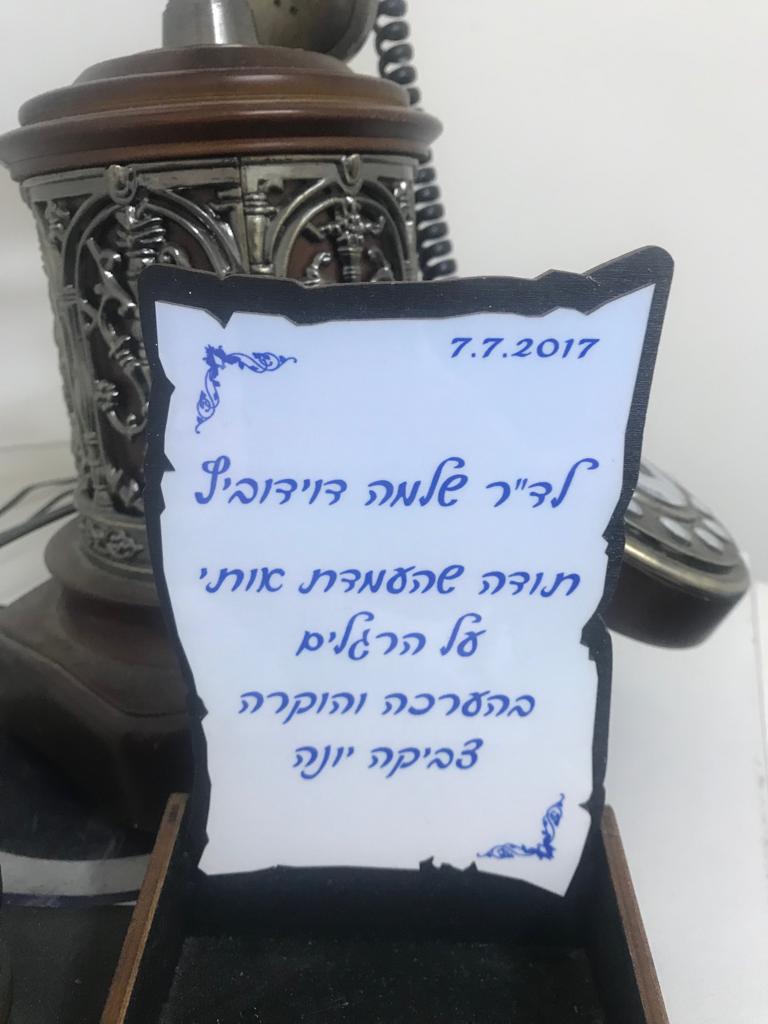 7.7.2017
לד"ר שלמה דוידוביץ
תודה שהעמדת אותי
על הרגלים
בהערכה והוקרה
צביקה יונה